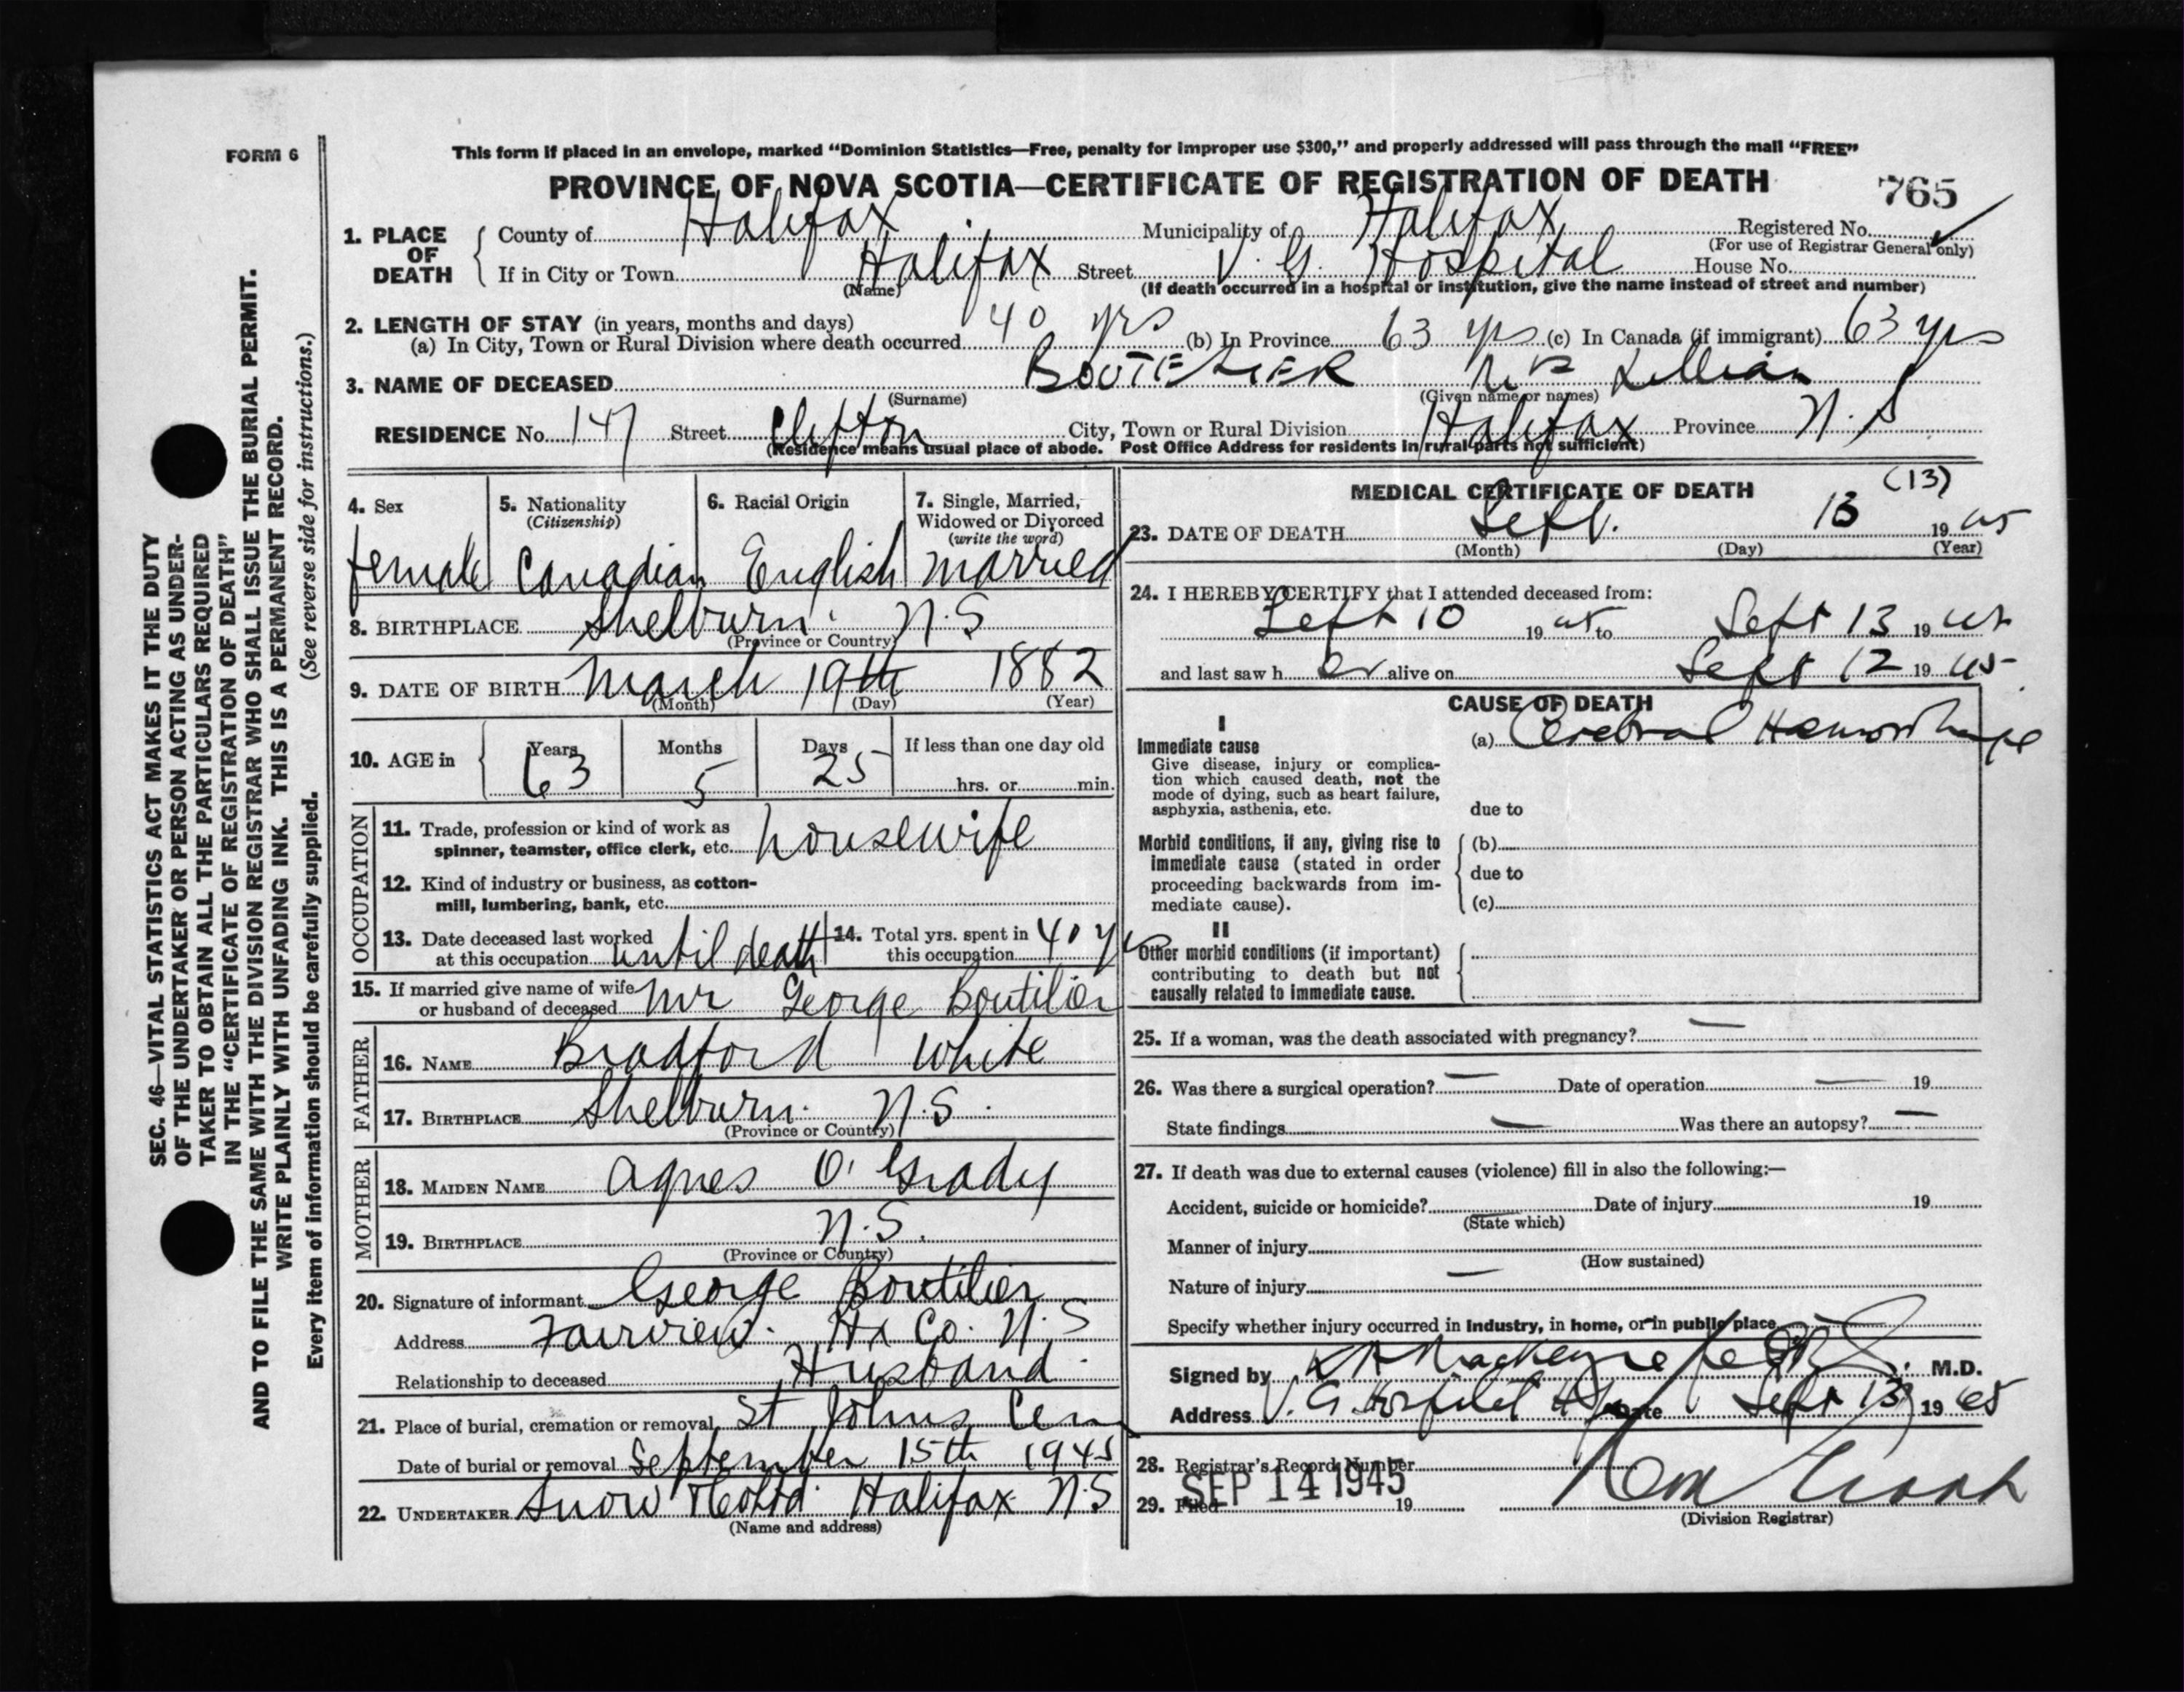 FORM 6
This form if placed in an envelope, marked “Dominion Statistics—Free, penalty for improper use $300,” and properly addressed will pass through the mail “FREE”
PROVINCE OF NOVA SCOTIA—CERTIFICATE OF REGISTRATION OF DEATH
765
1. PLACE OF DEATH
County of Halifax Municipality of Halifax Registered No.
(For use of Registrar General only)
If in City or Town Halifax Street V. G. Hospital House No.
(Name) (If death occurred in a hospital or institution, give the name instead of street and number)
2. LENGTH OF STAY (in years, months and days)
(a) In City, Town or Rural Division where death occurred 40 yrs (b) In Province 63 yrs (c) In Canada (if immigrant) 63 yrs
3. NAME OF DECEASED BOUTILIER Mrs Lillian
(Surname) (Given name or names)
RESIDENCE No. 147 Street Clifton City, Town or Rural Division Halifax Province N.S
(Residence means usual place of abode. Post Office Address for residents in rural parts not sufficient)
4. Sex
female
5. Nationality
(Citizenship)
Canadian
6. Racial Origin
English
7. Single, Married,
Widowed or Divorced
(write the word)
married
8. BIRTHPLACE Shelburn. N.S
(Province or Country)
9. DATE OF BIRTH March 19th 1882
(Month) (Day) (Year)
10. AGE in
Years Months Days If less than one day old
63 5 25 hrs. or min.
OCCUPATION
11. Trade, profession or kind of work as
spinner, teamster, office clerk, etc. housewife
12. Kind of industry or business, as cotton-
mill, lumbering, bank, etc.
13. Date deceased last worked
at this occupation until death
14. Total yrs. spent in
this occupation 40 yrs
15. If married give name of wife
or husband of deceased Mr George Boutilier
FATHER
16. NAME Bradford White
17. BIRTHPLACE Shelburn. N.S.
(Province or Country)
MOTHER
18. MAIDEN NAME Agnes O'Grady
19. BIRTHPLACE N.S.
(Province or Country)
20. Signature of informant George Boutilier
Address Fairview. Hx Co. N.S
Relationship to deceased Husband
21. Place of burial, cremation or removal St Johns Cem
Date of burial or removal September 15th 1945
22. UNDERTAKER Snow & Co Ltd. Halifax N.S
(Name and address)
MEDICAL CERTIFICATE OF DEATH
(13)
23. DATE OF DEATH Sept. 13 19 45
(Month) (Day) (Year)
24. I HEREBY CERTIFY that I attended deceased from:
Sept 10 19 45 to Sept 13 19 45
and last saw h er alive on Sept 12 19 45
CAUSE OF DEATH
I
Immediate cause
Give disease, injury or complica-
tion which caused death, not the
mode of dying, such as heart failure,
asphyxia, asthenia, etc.
(a) Cerebral Hemorrhage
due to
Morbid conditions, if any, giving rise to
immediate cause (stated in order
proceeding backwards from im-
mediate cause).
(b)
due to
(c)
II
Other morbid conditions (if important)
contributing to death but not
causally related to immediate cause.
25. If a woman, was the death associated with pregnancy? —
26. Was there a surgical operation? — Date of operation — 19
State findings — Was there an autopsy? —
27. If death was due to external causes (violence) fill in also the following:—
Accident, suicide or homicide? Date of injury 19
(State which)
Manner of injury
(How sustained)
Nature of injury —
Specify whether injury occurred in Industry, in home, or in public place
Signed by K A MacKenzie M.D.
Address V. G. Hospital Date Sept 13 19 45
28. Registrar's Record Number
29. Filed SEP 14 1945 19
(Division Registrar)
SEC. 46—VITAL STATISTICS ACT MAKES IT THE DUTY
OF THE UNDERTAKER OR PERSON ACTING AS UNDER-
TAKER TO OBTAIN ALL THE PARTICULARS REQUIRED
IN THE “CERTIFICATE OF REGISTRATION OF DEATH”
AND TO FILE THE SAME WITH THE DIVISION REGISTRAR WHO SHALL ISSUE THE BURIAL PERMIT.
WRITE PLAINLY WITH UNFADING INK. THIS IS A PERMANENT RECORD.
Every item of information should be carefully supplied. (See reverse side for instructions.)